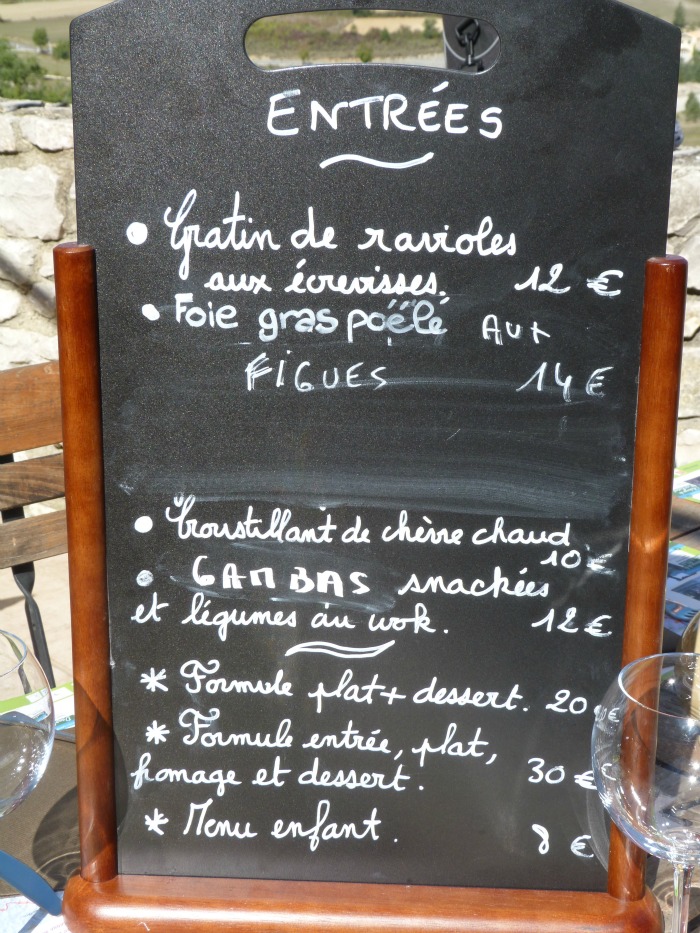 ENTRÉES
• Gratin de ravioles
aux écrevisses. 12 €
• Foie gras poëlé AUX
FIGUES 14 €
• Croustillant de chèvre chaud
10 €
• GAMBAS snackées
et légumes au wok. 12 €
* Formule plat + dessert. 20 €
* Formule entrée, plat,
fromage et dessert. 30 €
* Menu enfant. 8 €